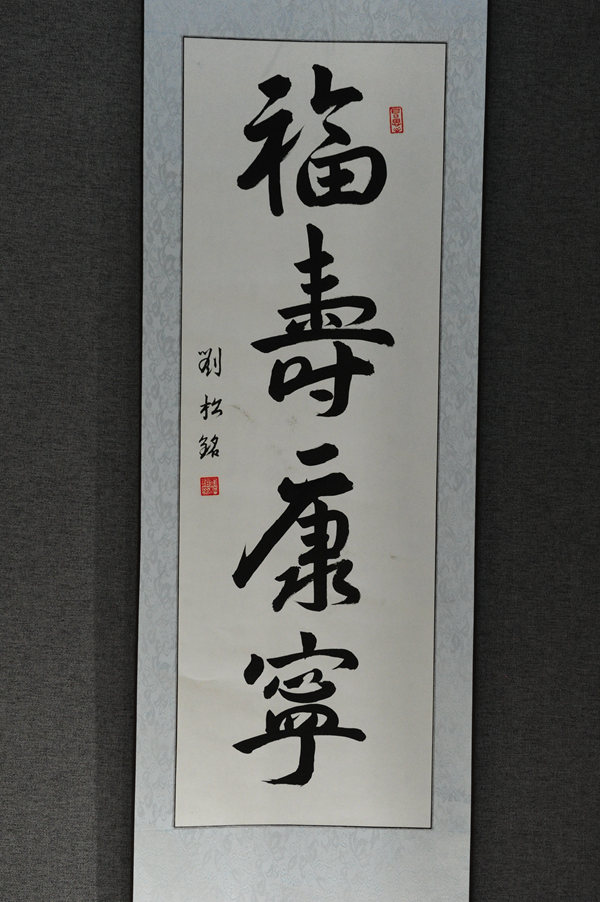 福壽康寧
劉松銘